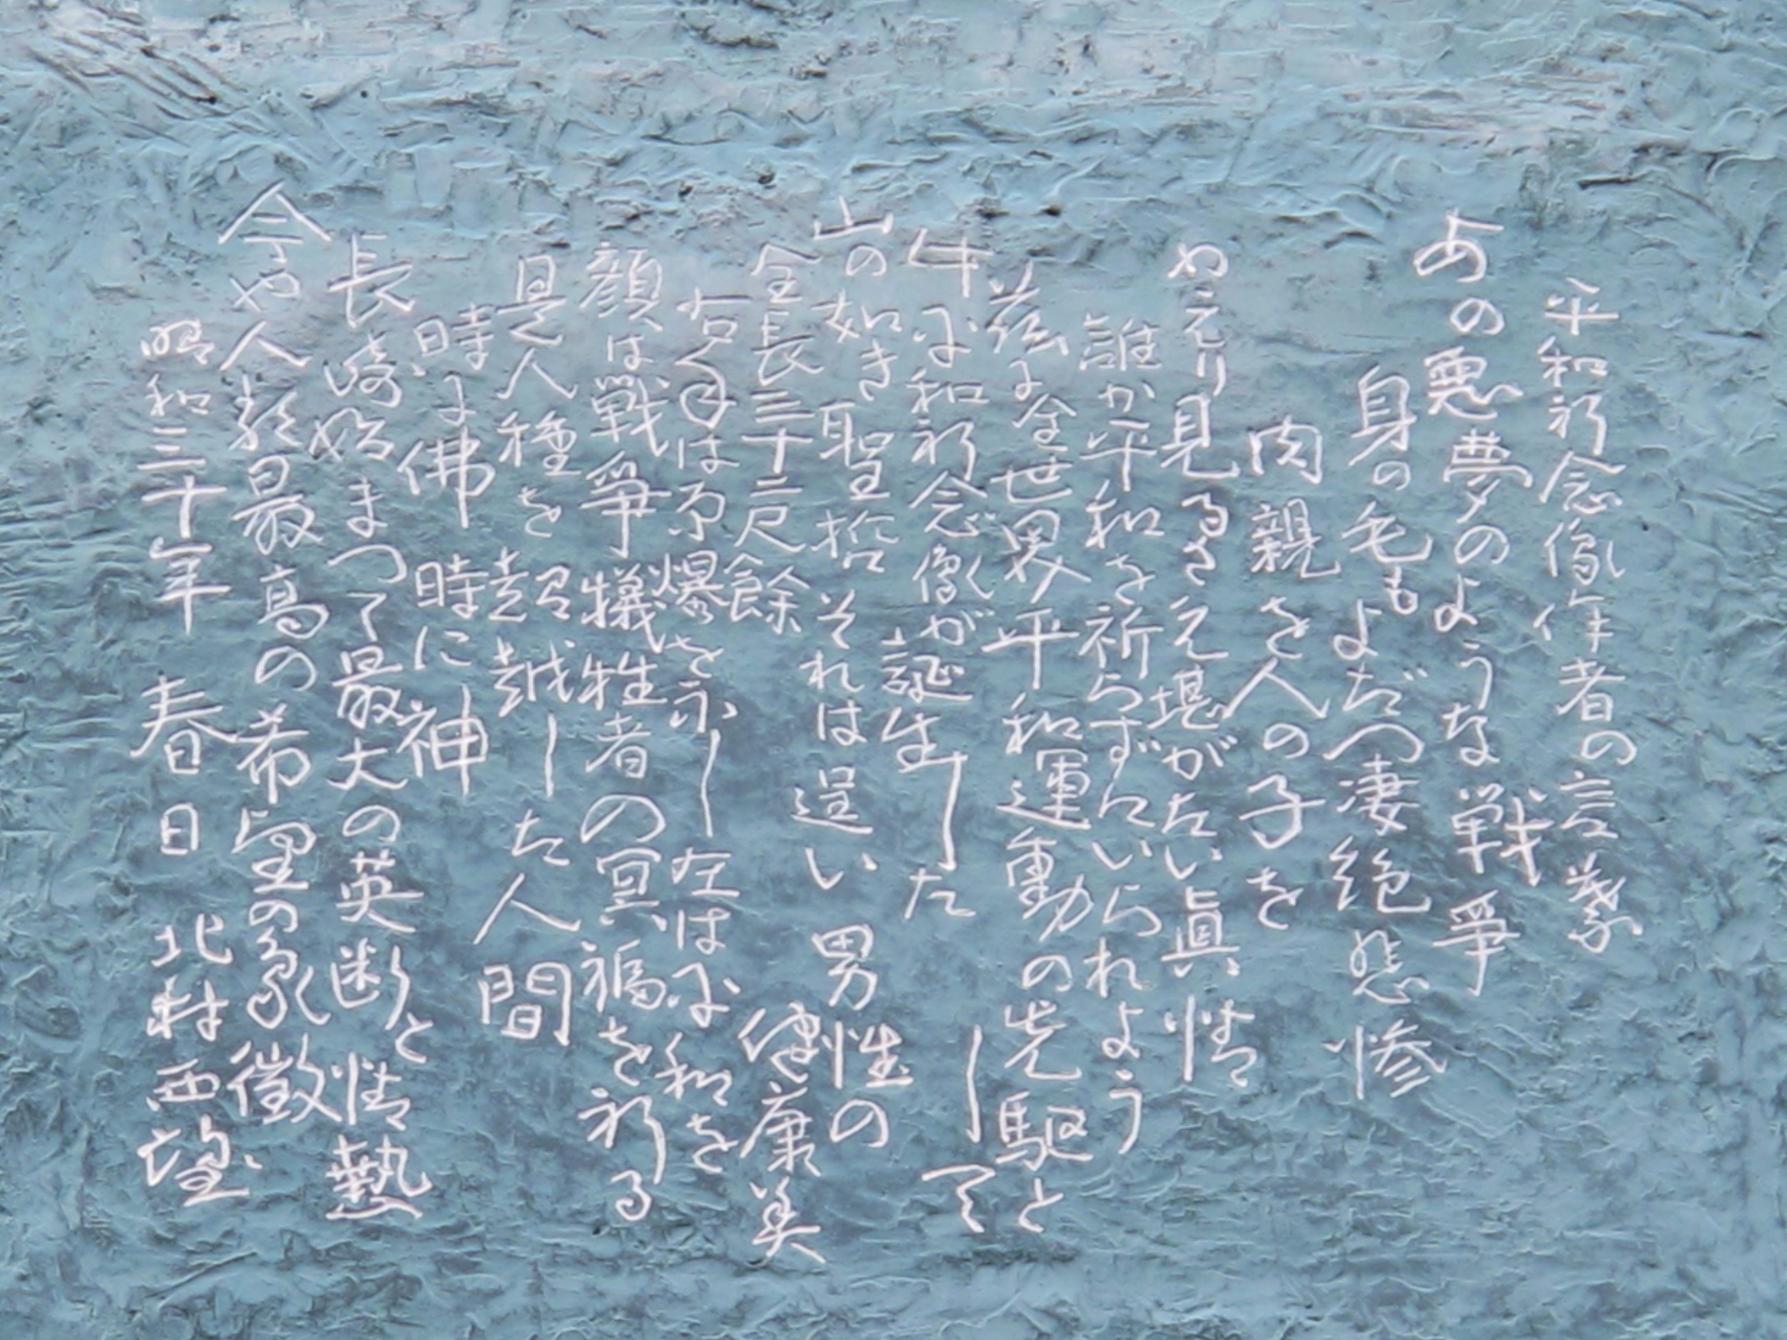 平和祈念像作者の言葉
あの悪夢のような戦争
身の毛もよだつ凄絶悲惨
肉親を人の子を
かえり見るさえ堪がたい眞情
誰か平和を祈らずにいられよう
茲に全世界平和運動の先駆として
平和祈念像が誕生した
山の如き聖哲 それは逞い男性の
健康美
全長三十二尺餘
右手は原爆を示し左は平和を
顔は戦争犠牲者の冥福を祈る
是人種を超越した人間
時に佛 時に神
長崎始まって最大の英断と情熱
今や人類最高の希望の象徴
昭和三十年 春日 北村西望